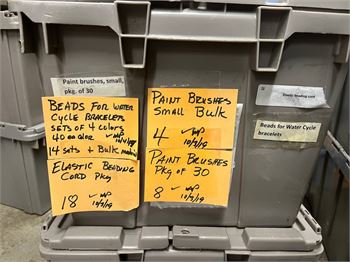 Paint brushes, small,
pkg. of 30
BEADS FOR WATER
CYCLE BRACELETS
SETS OF 4 COLORS
40 ea color ✓WP
14 SETS + BULK
ELASTIC BEADING
CORD Pkg
18 ✓WP
10/9/19
PAINT BRUSHES
SMALL BULK
4 ✓WP
10/9/19
PAINT BRUSHES
PKG OF 30
8 ✓WP
10/9/19
Elastic Beading cord
Beads for Water Cycle
bracelets